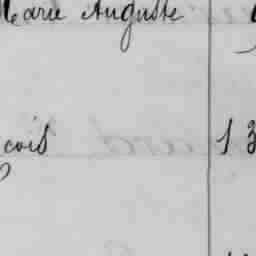 Marie Auguste
çois 13